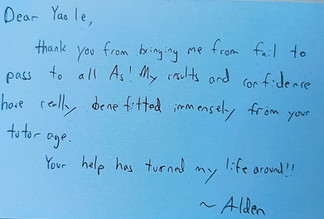 Dear Yao le,
thank you from bringing me from fail to
pass to all As! My results and confidence
have really benefitted immensely from your
tutor age.
Your help has turned my life around!!
~ Alden